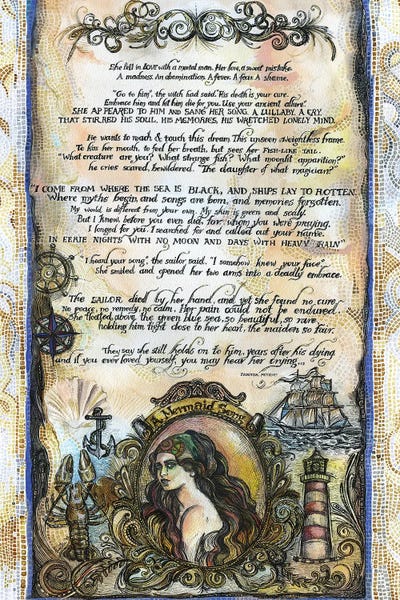 She fell in LOVE with a mortal man. Her love, a sweet mistake.
A madness. An abomination. A fever. A fear. A shame.
"Go to him", the witch had said. "His death is your cure.
Embrace him and let him die for you. Use your ancient allure".
SHE APPEARED TO HIM AND SANG HER SONG. A LULLABY, A CRY,
THAT STIRRED HIS SOUL, HIS MEMORIES, HIS WRETCHED LONELY MIND.
He wants to reach & touch this dream. This unseen weightless frame.
To kiss her mouth, to feel her breath, but sees her FISH-LIKE TAIL.
"What creature are you? What strange fish? What moonlit apparition?"
he cries scared, bewildered. "The daughter of what magician?"
"I COME FROM WHERE THE SEA IS BLACK, AND SHIPS LAY TO ROTTEN.
Where myths begin and songs are born, and memories forgotten.
My world is different from your own. My skin is green and scaly.
But I knew before you even did, for whom you were praying.
I longed for you. I searched for and called out your name.
IN EERIE NIGHTS WITH NO MOON AND DAYS WITH HEAVY RAIN"
"I heard your song", the sailor said. "I somehow knew your face"
She smiled and opened her two arms into a deadly embrace.
The SAILOR died by her hand, and yet she found no cure.
No peace, no remedy, no calm. Her pain could not be endured.
She floated above the green blue sea, so beautiful, so rare,
holding him tight close to her heart, the maiden so fair.
They say she still holds on to him, years after his dying
and if you ever loved yourself, you may hear her crying...
A Mermaid Song